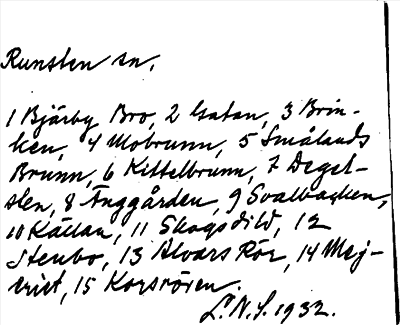 Runsten sn.
1 Bjärby Bro, 2 Gatan, 3 Brin-
ken, 4 Mobrunn, 5 Smålands
Brunn, 6 Kittelbrunn, 7 Degel-
sten, 8 Änggården, 9 Svalbacken,
10 Källan, 11 Skogsdild, 12
Stenbo, 13 Alvars Rör, 14 Mej-
eriet, 15 Korsrören.
L.N.S. 1932.